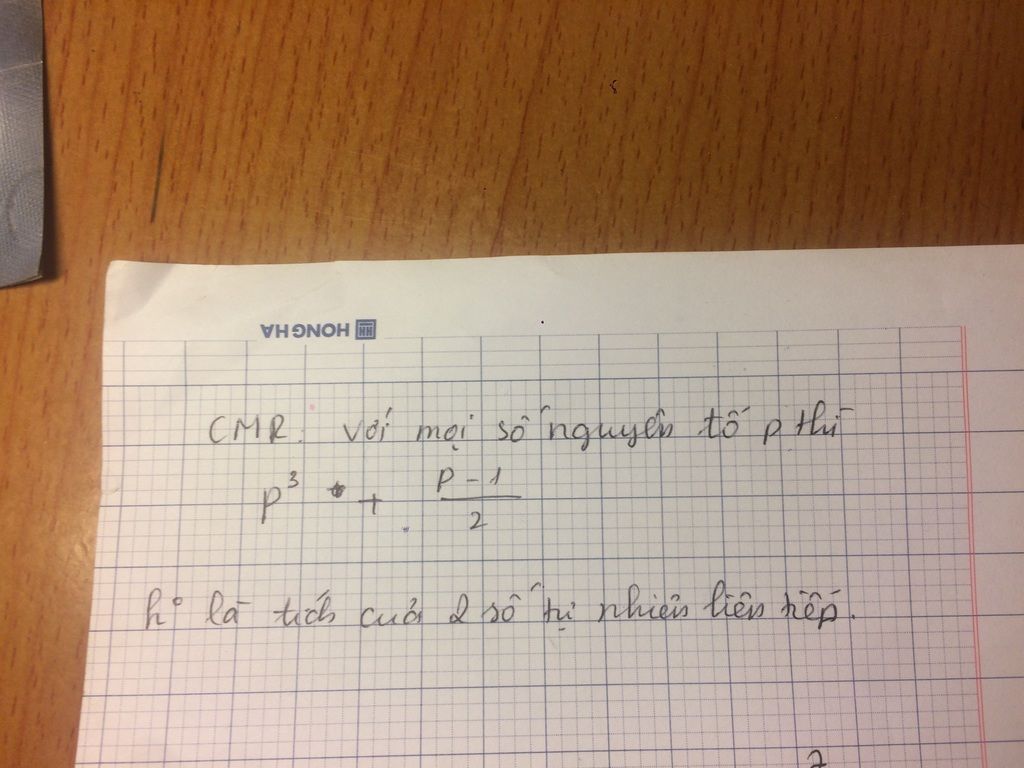 HONG HA
CMR: với mọi số nguyên tố p thì
p³ + \frac{p-1}{2}
k° là tích của 2 số tự nhiên liên tiếp.